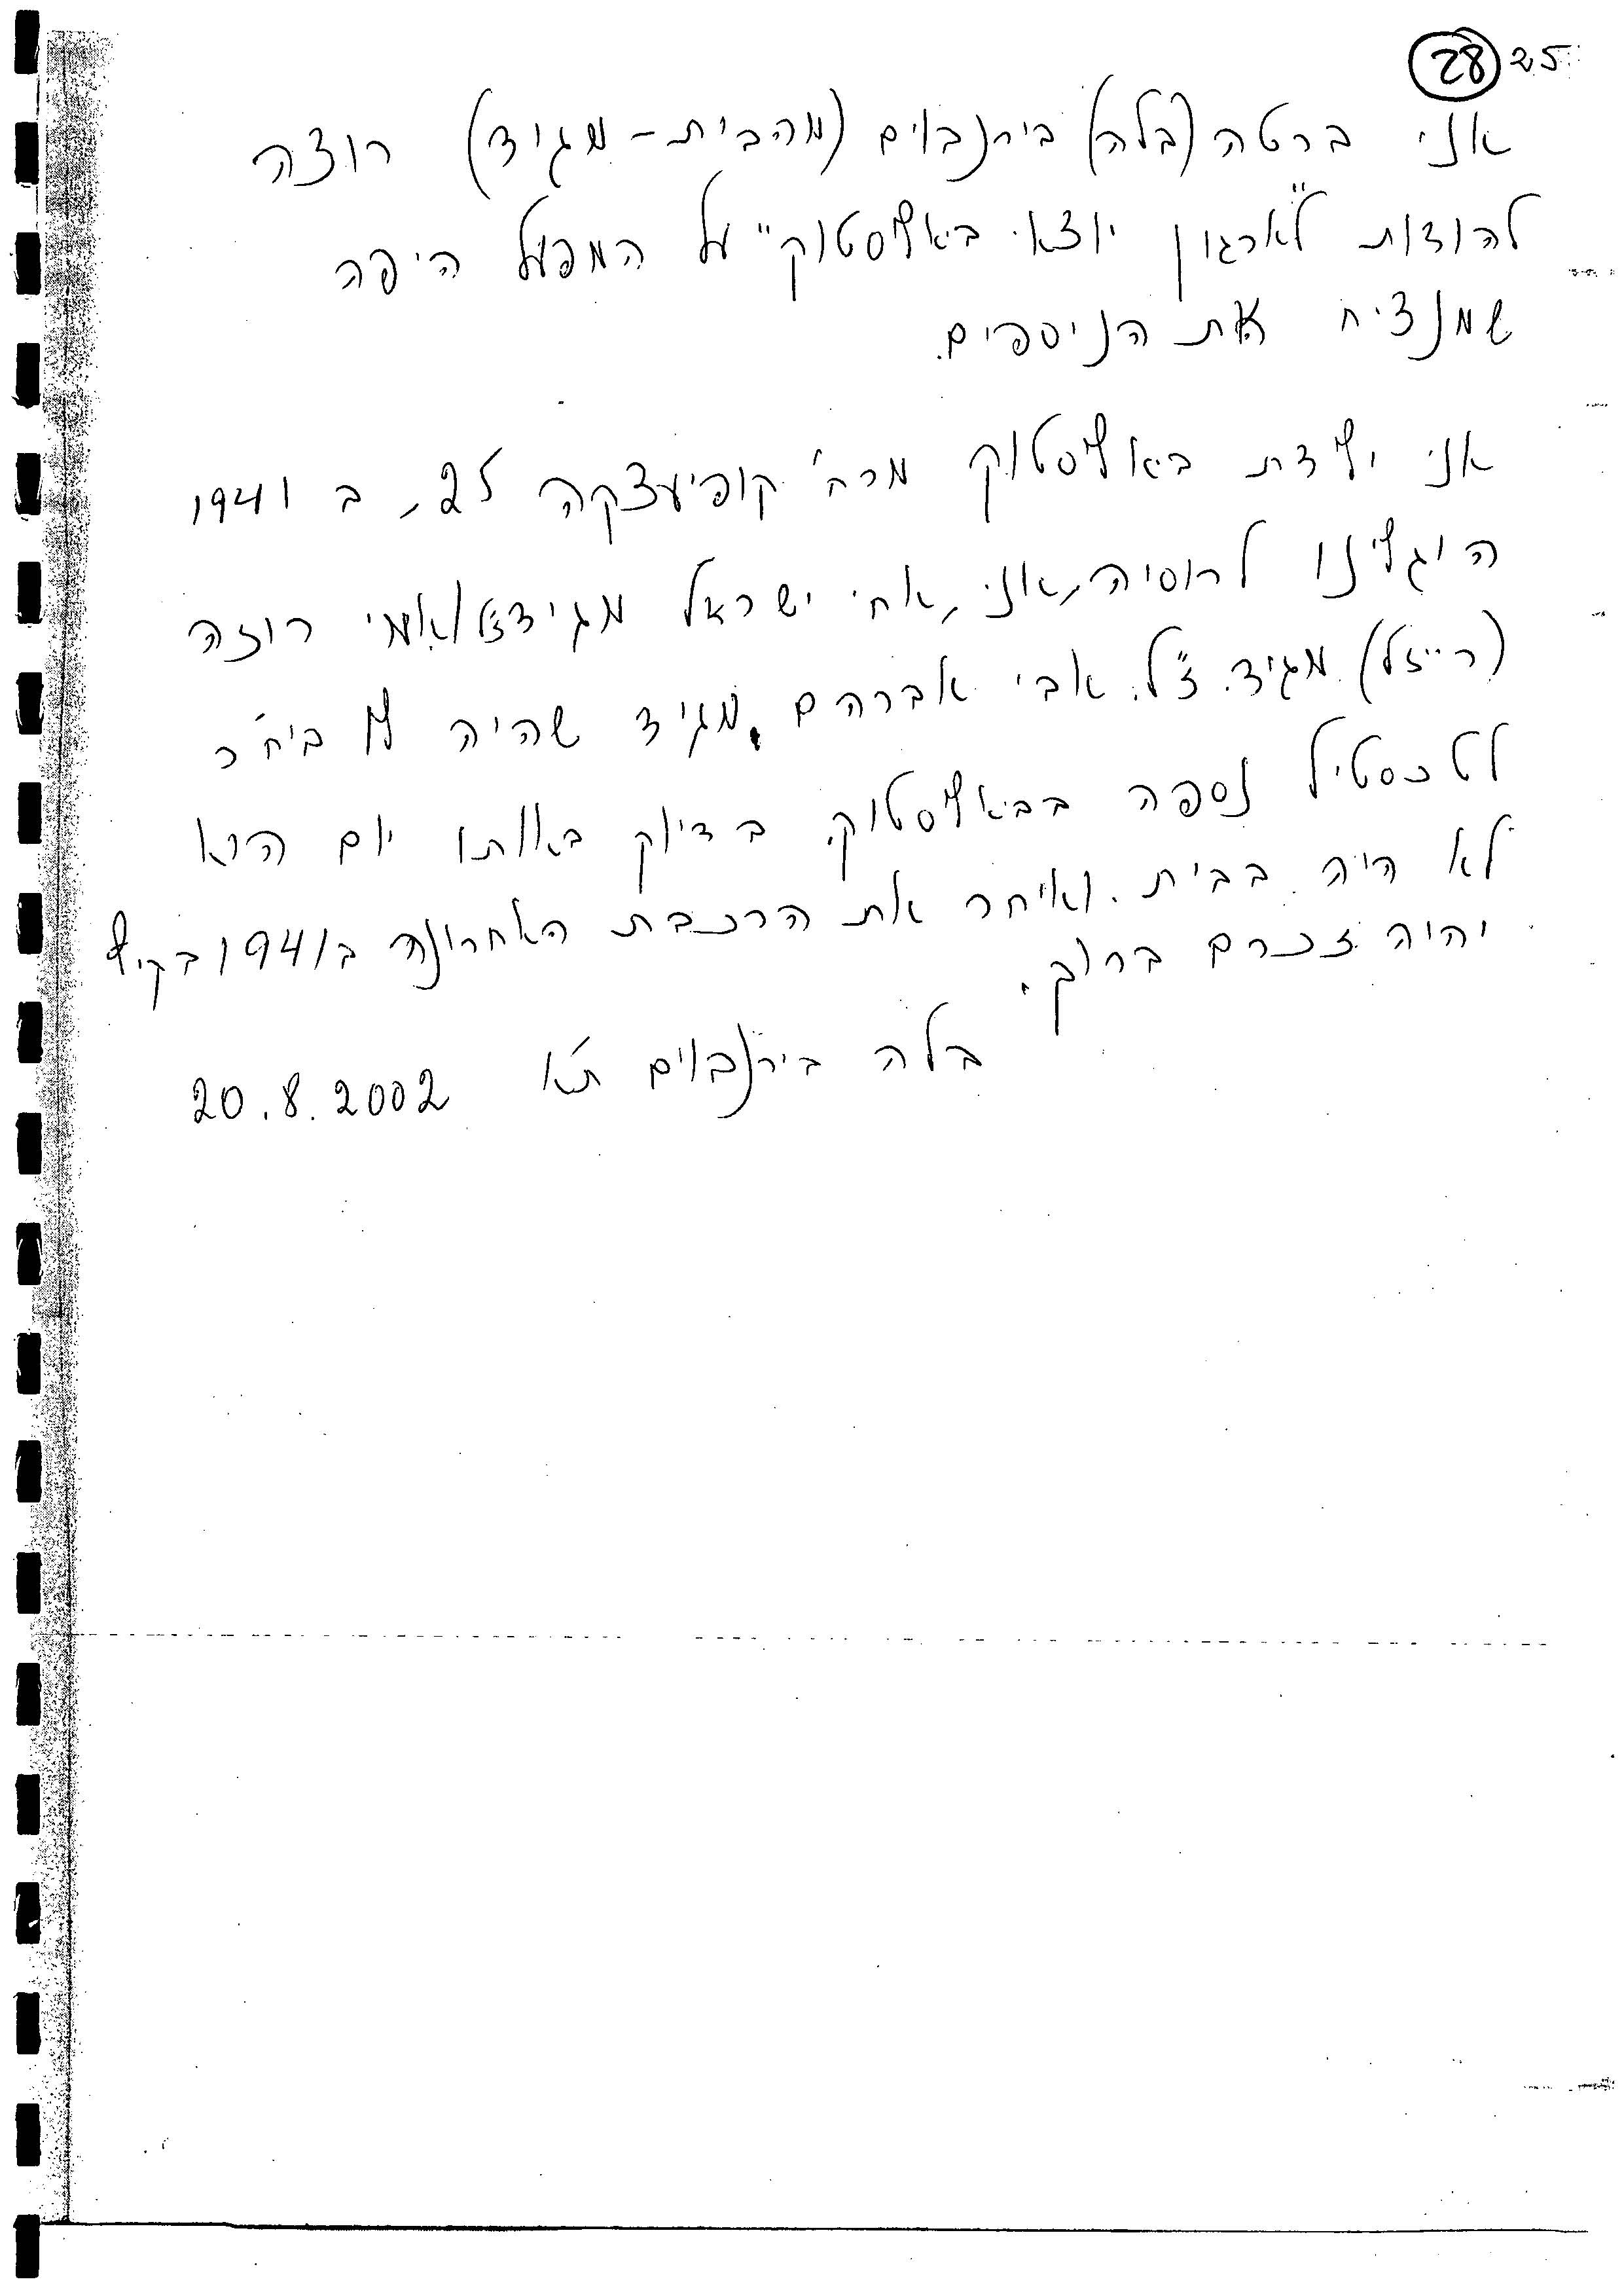 28 25
אני ברטה (בלה) בירנבוים (מהבית - מגיד) רוצה
להודות ל"ארגון יוצאי ביאליסטוק" על המפעל היפה
שמנציח את הניספים.
אני ילידת ביאליסטוק מרח' קופיעצקה 25, ב 1941
היגלינו לרוסיה, אני, אחי ישראל מגיד ואמי רוזה
(רייזל) מגיד ז"ל. אבי אברהם מגיד שהיה לו ביח"ר
לטכסטיל נספה בביאליסטוק. בדיוק באותו יום הוא
לא היה בבית. ואיחר את הרכבת האחרונה ב 1941 בקיץ
יהיה זכרם ברוך.
בלה בירנבוים ת"א 20.8.2002